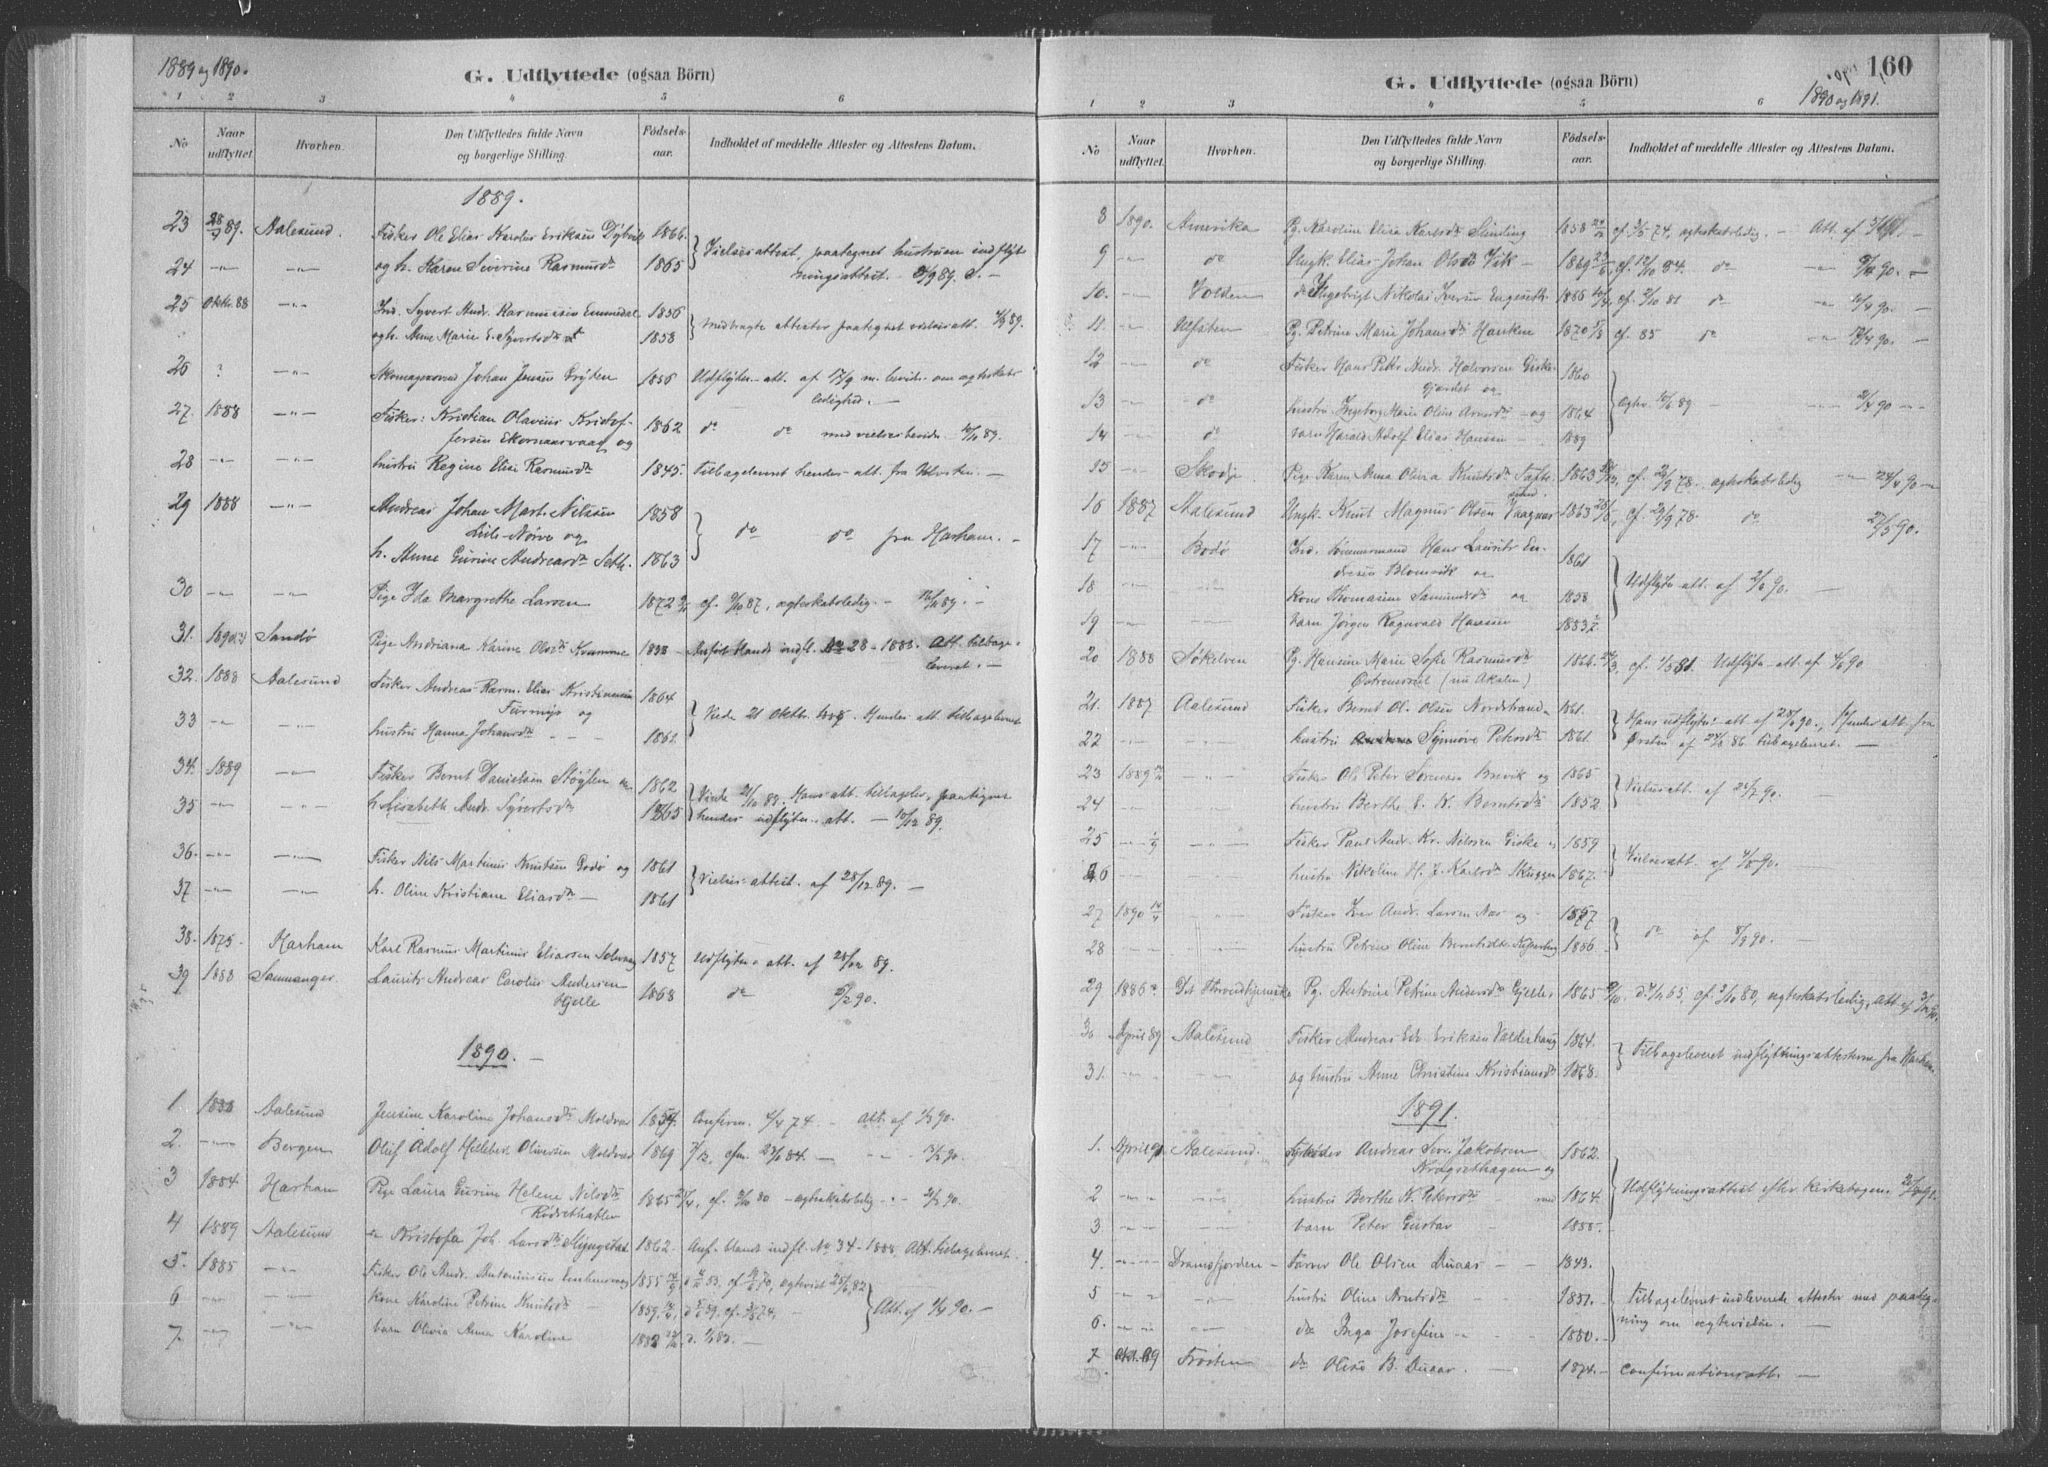 1889 og 1890.
G. Udflyttede (ogsaa Börn)
1 2 3 4 5 6
No
Naar udflyttet
Hvorhen.
Den Udflyttedes fulde Navn og borgerlige Stilling.
Fødsels-aar.
Indholdet af meddelte Attester og Attestens Datum.
1889.
23 28/9 89. Aalesund. Fisker Ole Elias Karolus Eriksen Dybvik 1866. Vielsesattest, paategnet hustruen indflyt
24 -"- -"- og h. Karen Severine Rasmusdr 1865 ningsattest.
25 Oktr. 88 -"- Ind. Syvert Andr. Rasmussen Emmedal 1856
ogh. Anne Marie E. Syvertsdr 1858 medbragte attester paategnet vielsesatt. 4/3 89.
26 ? -"- Skomagersvend Johan Jensen Gryten 1856 Udflytn.-att. af 17/9 m. bevis om ægteskabs
ledighed. -
27. 1888 -"- Fisker: Kristian Olavius Kristof-
fersen Ekornaasvaag og 1862 do do med vielsesbevis 10/10 89.
28 -"- -"- hustru Regine Elise Rasmusdr 1845. Tilbageleveret hendes att. fra Ulvsten. -
29 1888 -"- Andreas Johan Mart. Nilssen 1858
Lille-Nörve og do do fra Harham. -
h. Anne Gurine Andreasdr Seth. 1863
30 -"- -"- Pige Ida Margrethe Larsen 1872 cf. 9/10 87, ægteskabsledig. - 16/11 89. -
31. Sandö Pige Andriana Karine Olsdr Kvamme 1838 - Anfört blandt indfl. No 28 - 1888. Att. tilbage-
leveret. -
32. 1888 Aalesund Fisker Andreas Rasm. Elias Kristiansen 1864
Furmyr og Viede 21 Oktbr. 1888. Hendes att. tilbageleveret
33 -"- -"- hustru Hanna Johansdr - - 1861.
34. 1889 -"- Fisker Bernt Danielsen Stöylen og 1862 Viede 21/10 88. Hans att. tilbagelev., paategnet
35 -"- -"- h. Elisabeth Andr. Syvertsdr 1865 hendes udflytn.-att. - 10/12 89.
36. -"- -"- Fisker Nils Martinus Knutsen Godö og 1861
37 -"- -"- h. Oline Kristiane Eliasdr - 1861 Vielses-attest. af 28/12 89. -
38. 1875. Harham Karl Rasmus Martinus Eliassen Solevaag 1857 Udflytn.-att. af 28/12 89.
39 1888 Samnanger. Laurits Andreas Carolius Andersen
Gjelle 1868 do 5/2 90.
1890. -
1 1888 Aalesund Jensine Karoline Johansdr Moldvær 1854 Confirm. 6/4 74 - Att. af 1/3 90.
2. -"- Bergen Oluf Adolf Hildeber Oliversen Moldvær 1869 7/12, cfm. 28/9 84. - -"- 13/3 90.
3 1884 Harham Pige Laura Gurine Helene Nilsdr
Rödsethatlen 1865 24/4, cf. 3/10 80 - ægteskabsledig - 2/4 90.
4 1889 Aalesund do Kristofa Joh. Larsdr Slyngstad 1862. Anf. blandt indfl. No 34 - 1888. Att. tilbageleveret.
5. 1885 -"- Fisker Ole Andr. Antoniussen Emblemsvaag 1855 ægteviet 25/6 82
6 -"- -"- Kone Karoline Petrine Knutsdr - 1859 Att. af 9/4 90. -
7. -"- -"- barn Olivia Anna Karoline 1882
160
1890 og 1891.
G. Udflyttede (ogsaa Börn)
1 2 3 4 5 6
No
Naar udflyttet.
Hvorhen.
Den Udflyttedes fulde Navn og borgerlige Stilling.
Fødsels-aar.
Indholdet af meddelte Attester og Attestens Datum.
8 1890. Amerika Pg. Karoline Elisa Karlsdr Simling 1858 cf. 3/5 74, ægteskabsledig. - Att. af
9 -"- do Ungk. Elias Johan Olsen Vik - 1869 cf. 12/10 84. do -"- 9/4 90. -
10. -"- Volden do Ingebrigt Nikolai Iversen Engeseth 1866 cf. 2/10 81 do -"- 10/4 90. -
11. -"- Ulfsten Pg. Petrine Marie Johansdr Hanken 1870 cf. 85 do -"- 12/4 90. -
12 -"- do Fisker Hans Petter Andr. Halvorsen Giske- 1860
gjerdet og
13 -"- do hustru Ingeborg Marie Oline Arnesdr - og 1864 ægtev. 10/6 89 - -"- 21/4 90 -
14 -"- do barn Harald Adolf Elias Hansen - 1889
15 -"- Skodje Pige Karen Anna Olivia Knutsdr Tafte-
sund. 1863 cf. 29/9 78. ægteskabsledig -"- 28/4 90 -
16 1887 Aalesund Ungk. Knut Magnus Olsen Vaagnæs 1863 cf. 29/9 78. do 27/5 90.
17 -"- Bodö Ind. tömmermand Hans Laurits En-
dresen Blomvik og 1861
18 -"- -"- Kone Thomasine Samuelsdr og 1858 Udflytn. att. af 2/6 90. -
19 -"- barn Jörgen Ragnvald Hansen 1883
20 1888 Sökelven Pg. Hansine Marie Sofie Rasmusdr
Östrem (nu Aksten) 1866 cf. 1/5 81. Udflytn. att. af 4/6 90
21. 1887 Aalesund Fisker Bernt Ol. Olsen Nordstrand - 1861. Hans udflytn. att. af 28/6 90., Hendes att. fra
22 -"- -"- hustru Synnöve Petersdr 1861. Örsten af 24/2 86. tilbageleveret. -
23 1889 -"- Fisker Ole Peter Sörensen Brevik og 1865
24 -"- -"- hustru Berthe E. N. Berntsdr 1852 Vielsesatt. af 26/7 90. -
25 -"- -"- Fisker Paul Andr. Kr. Nilssen Giske og 1859
26 -"- hustru Nikoline H. J. Karlsdr Skuggen 1867. Vielsesatt. af 4/8 90. -
27 1890 -"- Fisker Iver Andr. Larsen Nes og 1857
28 -"- hustru Petrine Oline Berntsdr 1856 do af 8/9 90.
29 1886 Det Borgundtjenest Pg. Antoine Petrine Andersdr Gjelles 1865 d. 7/1 65, cf. 3/10 80, ægteskabsledig. Att. af 3/12 90.
30 April 89 Aalesund Fisker Andreas Edv. Eriksen Valderhaug 1864.
31. -"- -"- og hustru Anne Christine Kristiansdr 1868. Tilbageleveret indflytningsattesterne fra Harham.
1891.
1. April 90 Aalesund. Andreas Sev. Jakobsen
Krogsethagen og 1862.
2 -"- -"- hustru Berthe K. Petersdr - med 1864. Udflytningsattest efter kirkebogen.
3 -"- -"- barn Peter Gustav - 1888.
4. -"- Dramsfjorden - Farver Ole Olsen Duaas - - 1843.
5 -"- -"- hustru Oline Arntsdr - - 1851. Tilbageleveret indleverede attester med paateg-
ning om ægtevielse. -
6. -"- -"- do Inga Josefine - - 1880.
7 Okt. 89 Frosten do Olise B. Duaas - 1874. Confirmationsatt. -